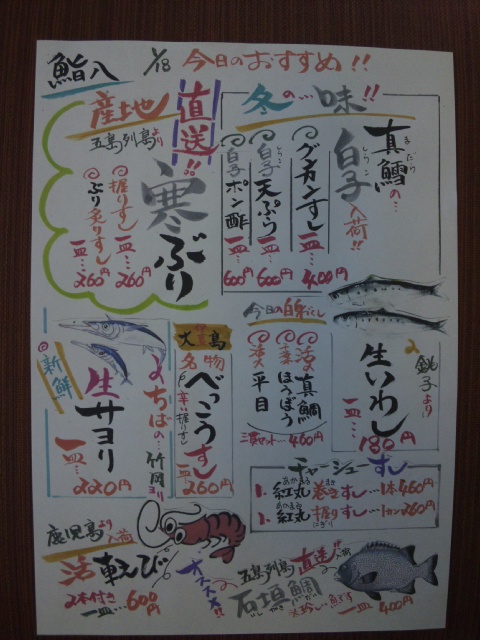 鮨八 1/18 今日のおすすめ!!
産地直送!!
五島列島より
寒ぶり
握りずし 一皿… 260円
ぶり炙りずし 一皿… 260円
冬の…味!!
真鱈の…
まだら
白子入荷!!
しらこ
グンカンすし 一皿… 400円
白子天ぷら 一皿… 600円
しらこ
白子ポン酢 一皿… 600円
新鮮
うちぼの… 竹岡ヨリ
生サヨリ
一皿… 220円
大島
名物
べっこうずし
一皿 260円
今日の白身づくし
活真鯛
ほうぼう
活平目
三貫セット… 460円
銚子より
生いわし
一皿… 180円
チャーシューすし
1、紅丸巻きずし… 1本 460円
あかまる
1、紅丸握りずし… 1カン 260円
あかまる にぎり
鹿児島より入荷
活車えび
2本付き
一皿… 600円
大大大!!
五島列島直送入荷
石垣鯛
いしがきだい
※珍しい魚です
一皿 400円